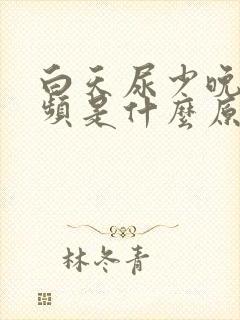 白天尿少晚
頻是什麼原
林冬青